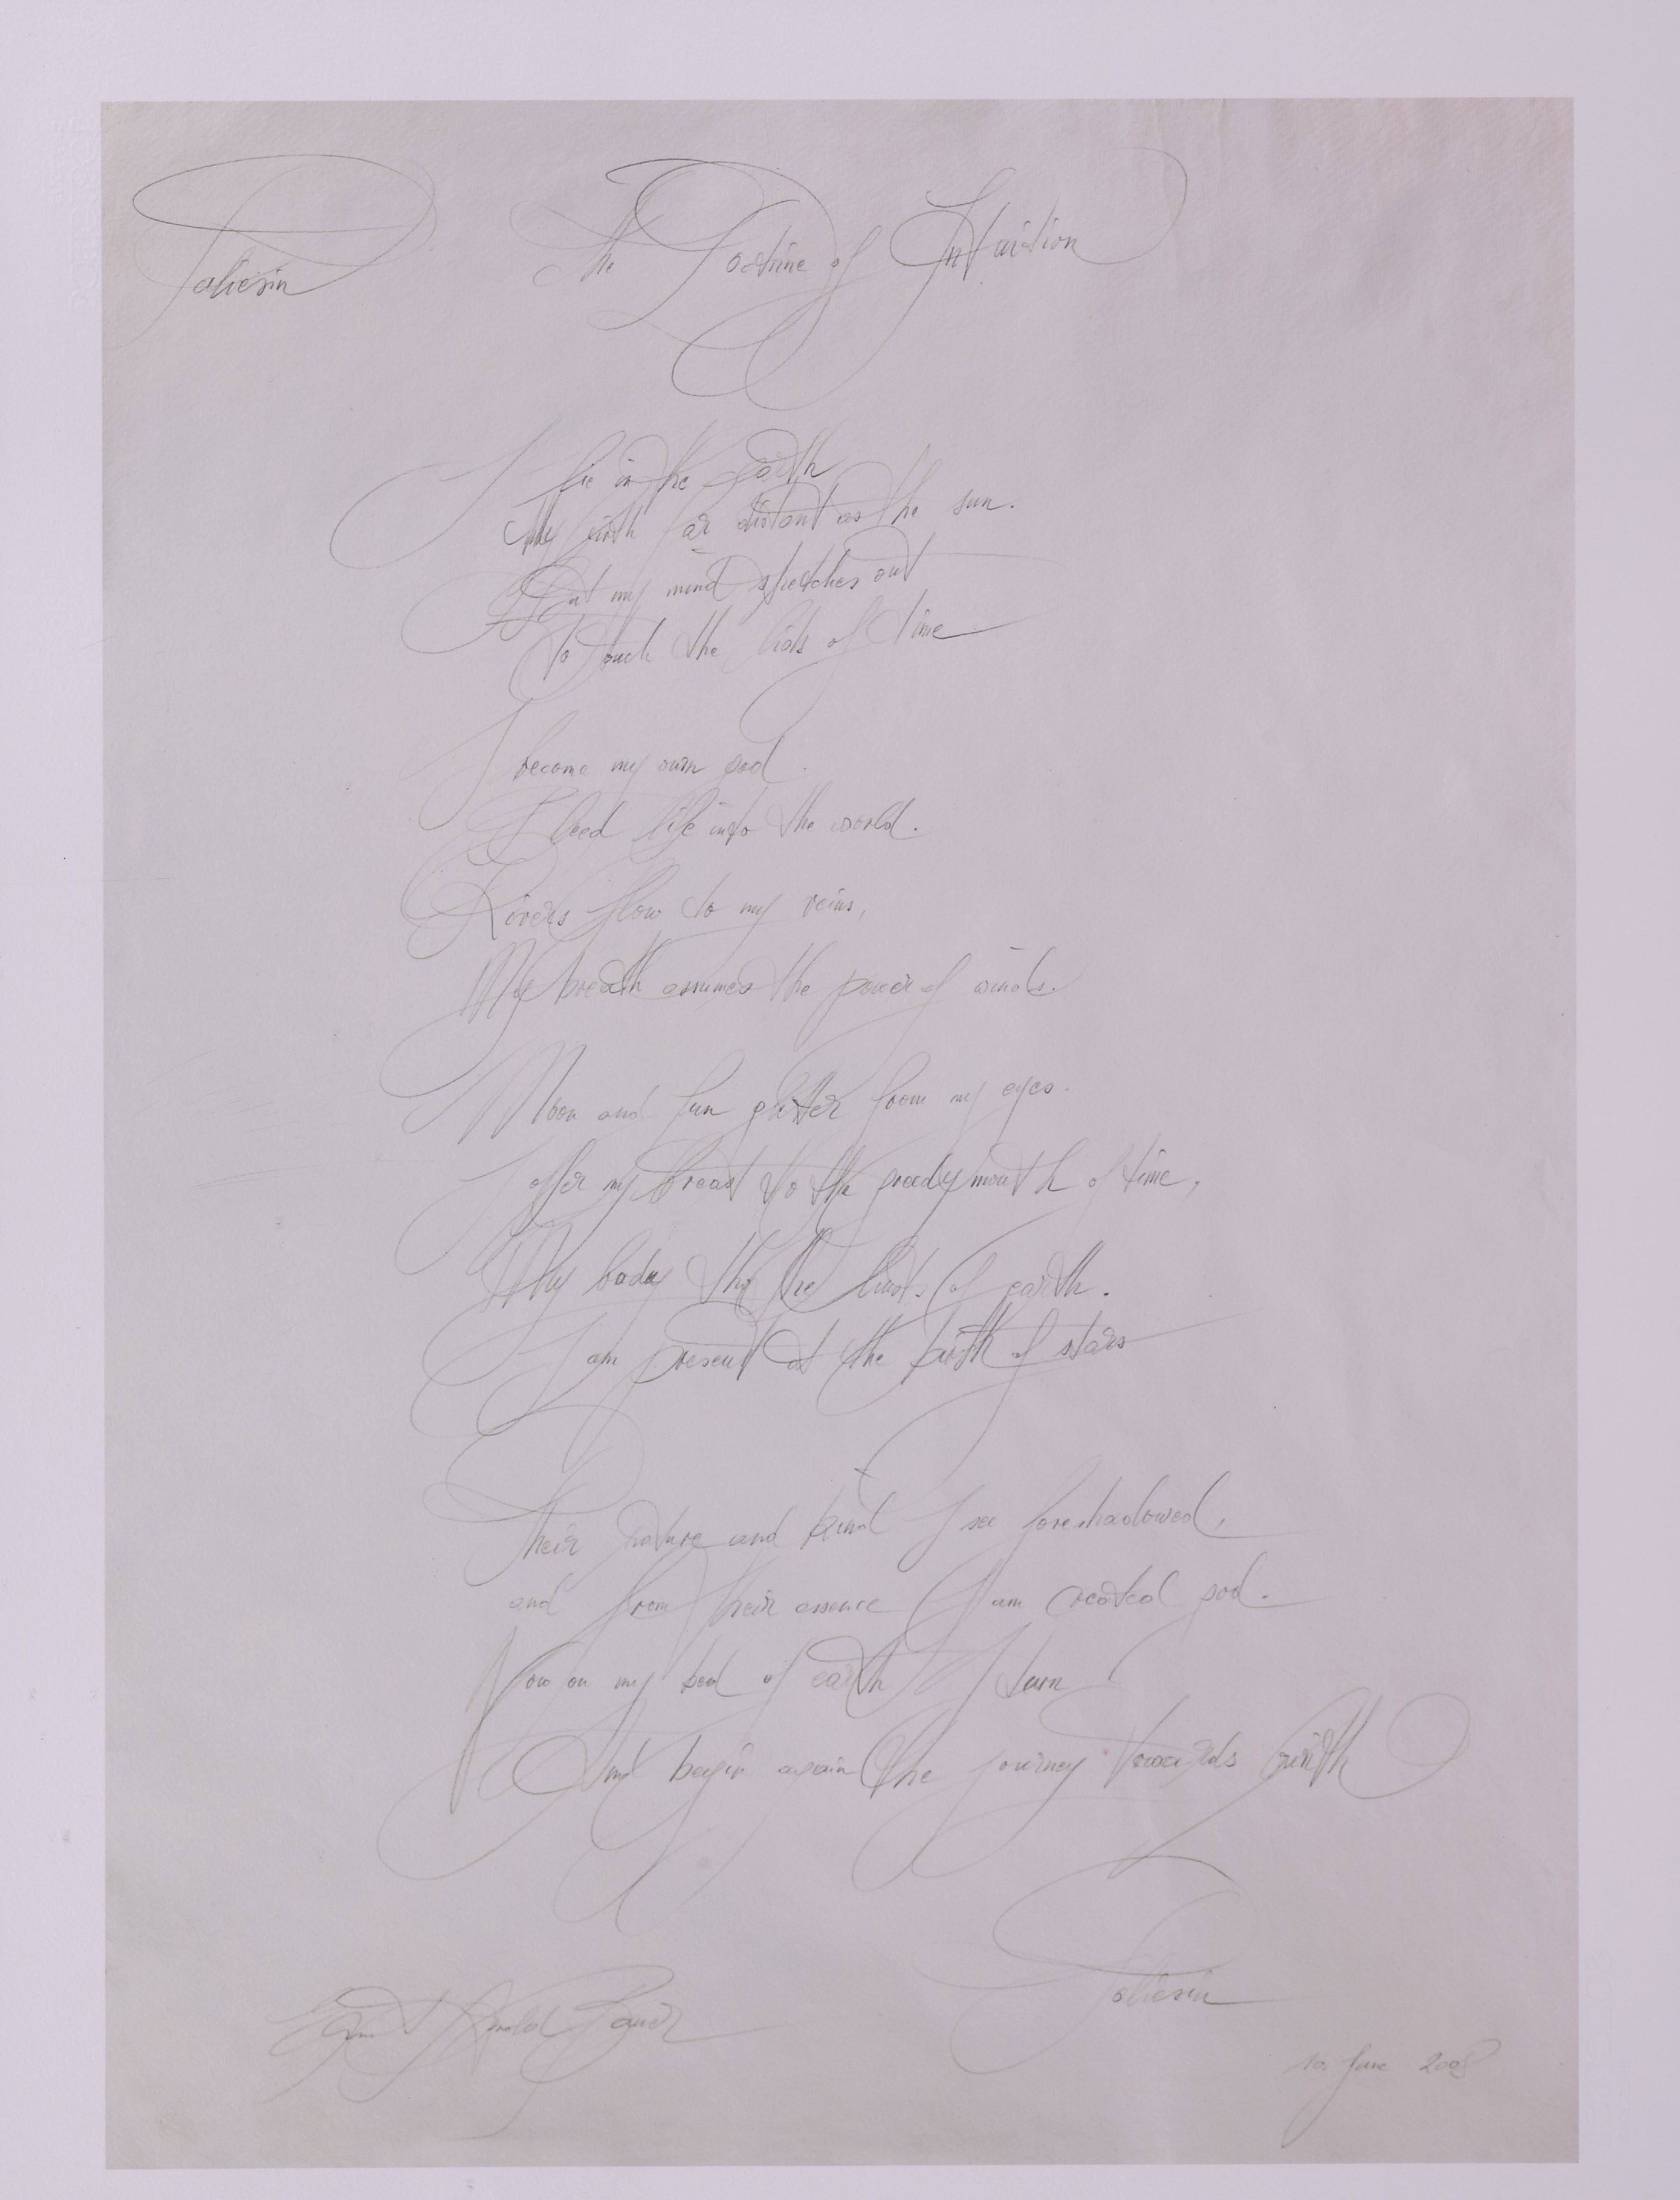 Taliesin
The Doctrine of Intuition
I lie in the earth
My birth far distant as the sun.
But my mind stretches out
To touch the lids of time
I become my own god.
I bleed life into the world.
Rivers flow to my veins,
My breath assumes the power of winds.
Moon and Sun glitter from my eyes.
I offer my breast to the greedy mouth of time,
My body the of earth.
I am present at the birth of stars
Their nature and kind I see foreshadowed,
and from their essence I am created god.
Now on my bed of earth I turn
And begin again the journey towards birth
Taliesin
Arnold Bauer
10. June 2008